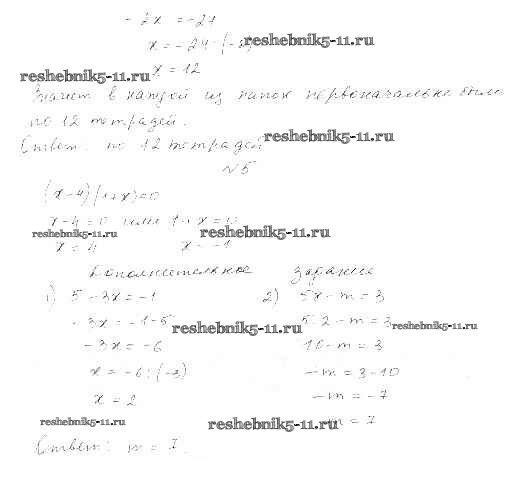 - 2x = -24
x = -24 : (-2)
reshebnik5-11.ru
reshebnik5-11.ru
x = 12
Значит в каждой из папок первоначально было
по 12 тетрадей.
reshebnik5-11.ru
Ответ: по 12 тетрадей
№5
(x-4)(1+x)=0
x-4=0 или 1+x=0
reshebnik5-11.ru
reshebnik5-11.ru
x = 4 x = -1
Дополнительное задание
1) 5-3x=-1 2) 5x-m=3
-3x=-1-5 5·2-m=3
reshebnik5-11.ru
reshebnik5-11.ru
-3x=-6 10-m=3
x=-6:(-3) -m=3-10
x=2 -m=-7
reshebnik5-11.ru
reshebnik5-11.ru
m=7
Ответ: m=7.